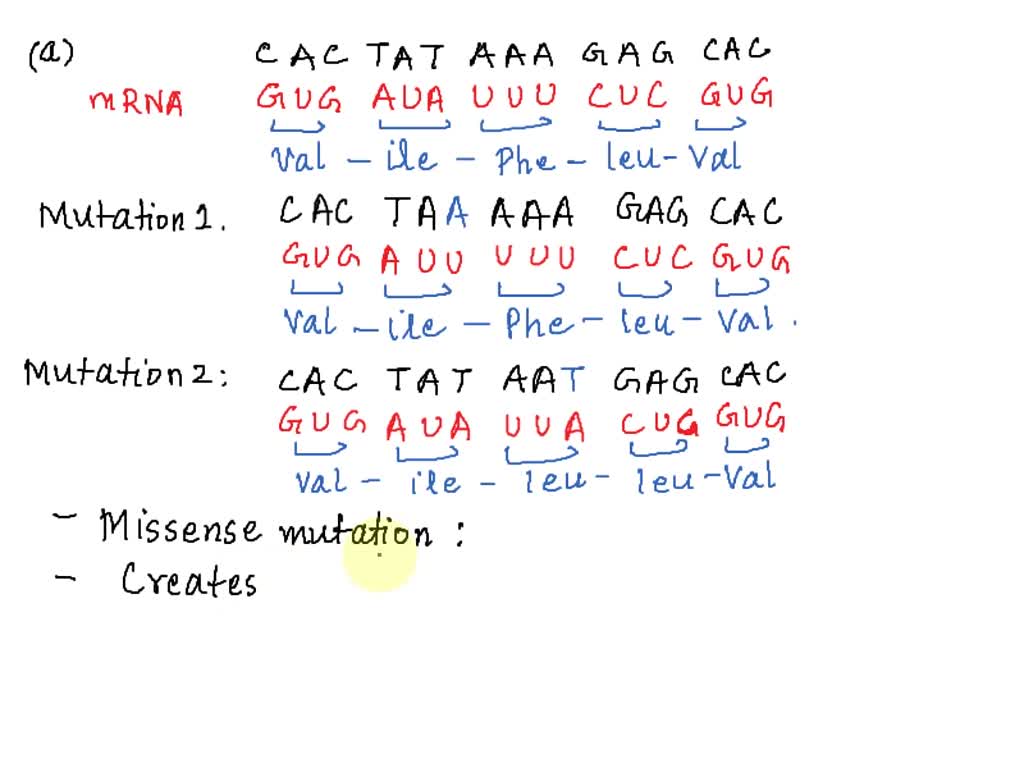 (a) CAC TAT AAA GAG CAC
mRNA GUG AUA UUU CUC GUG
Val - ile - Phe - leu - Val
Mutation 1. CAC TAA AAA GAG CAC
GUG AUU UUU CUC GUG
Val - ile - Phe - leu - Val .
Mutation 2: CAC TAT AAT GAG CAC
GUG AUA UUA CUG GUG
Val - ile - leu - leu - Val
- Missense mutation :
- Creates